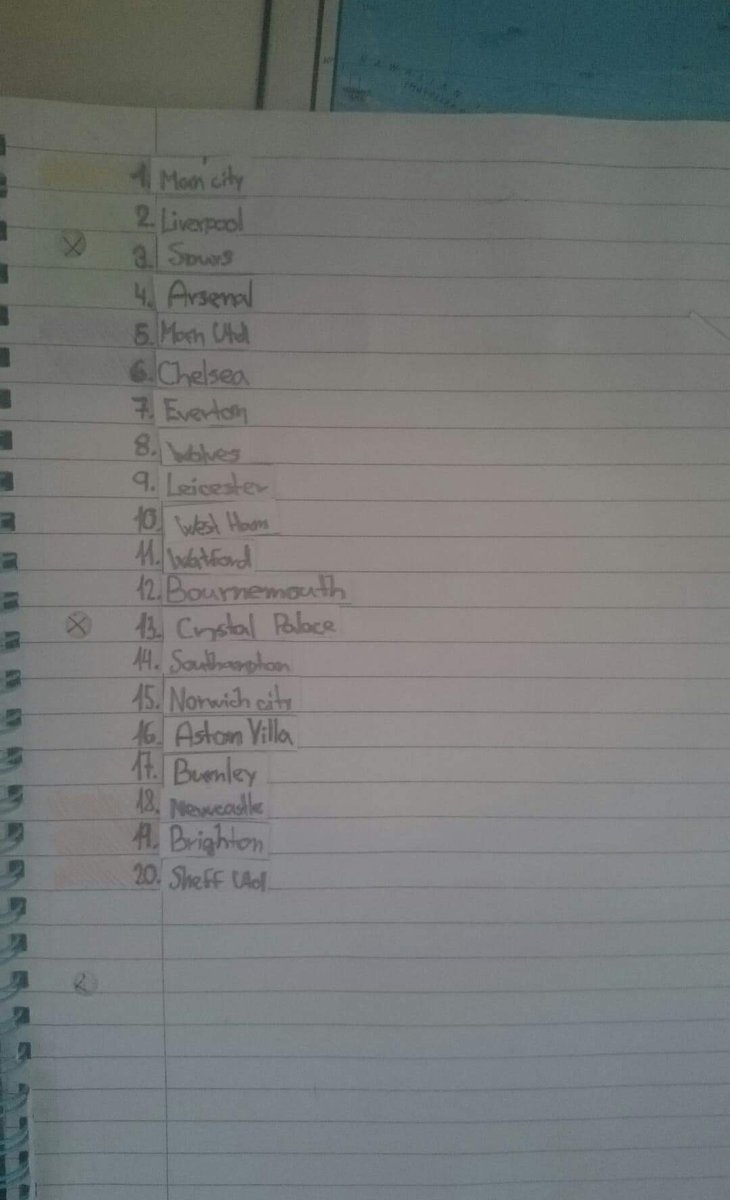 1. Man city
2. Liverpool
3. Spurs
4. Arsenal
5. Man Utd
6. Chelsea
7. Everton
8. Wolves
9. Leicester
10. West Ham
11. Watford
12. Bournemouth
13. Crystal Palace
14. Southampton
15. Norwich city
16. Aston Villa
17. Burnley
18. Newcastle
19. Brighton
20. Sheff Utd